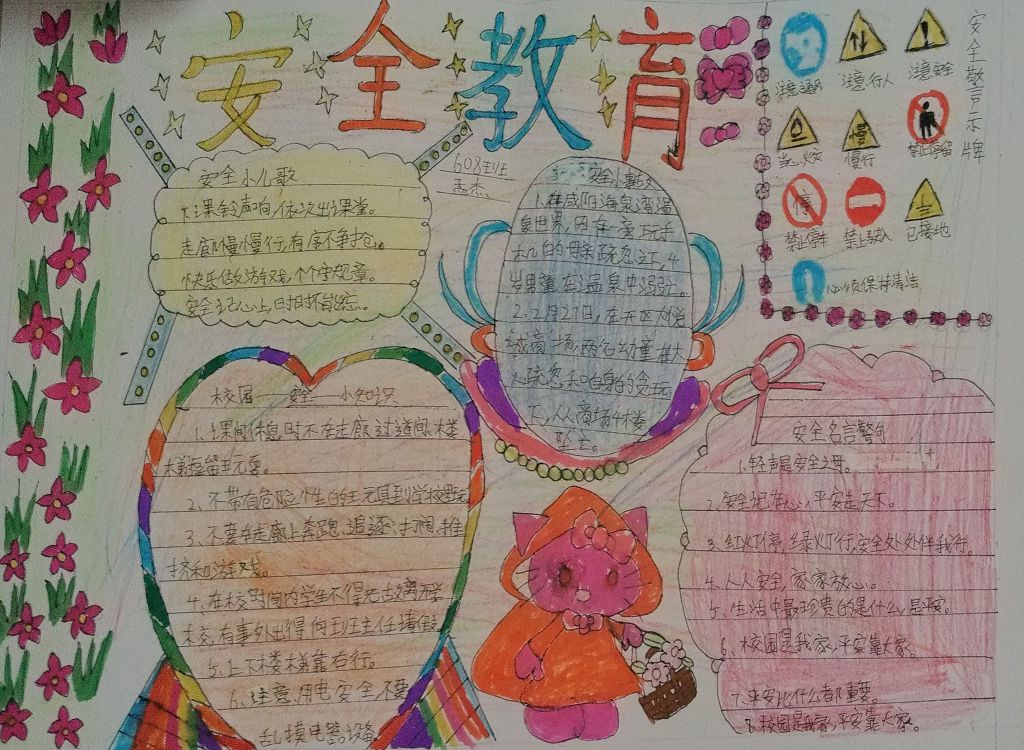 安全教育
608班
孟杰
安全小儿歌
下课铃声响,依次出课堂。
走廊慢慢行,有序不争抢。
快乐做游戏,个个守规章。
安全记心上,日日不能忘。
安全小事故
1.在咸阳海泉湾温
泉世界,因在旁玩手
机的母亲疏忽之下,4
岁男童在温泉中溺亡。
2.2月27日,在开区大悦
城商场,两名幼童在大
人疏忽和自身的贪玩
下,从商场4楼
坠亡。
安全警示牌
注意通风
注意行人
注意安全
当心火灾
慢行
慢
禁止停留
停
禁止停车
禁止驶入
已接地
必须保持清洁
校园——安全——小知识
1、课间休息时不在走廊过道间、楼
梯逗留玩耍。
2、不带有危险性的玩具到学校玩
3、不要在走廊上奔跑、追逐、打闹、推
挤和游戏。
4、在校时间内学生不得无故离开学
校,有事外出得向班主任请假
5、上下楼梯靠右行。
6、注意用电安全不要
乱摸电器设备
安全名言警句
1.轻声是安全之母。
2、安全记在心,平安走天下。
3、红灯停,绿灯行,安全处处伴我行。
4、人人安全,家家放心。
5、生活中最珍贵的是什么,是平安。
6、校园是我家,平安靠大家。
7、平安比什么都重要。
8、校园是我家,平安靠大家。